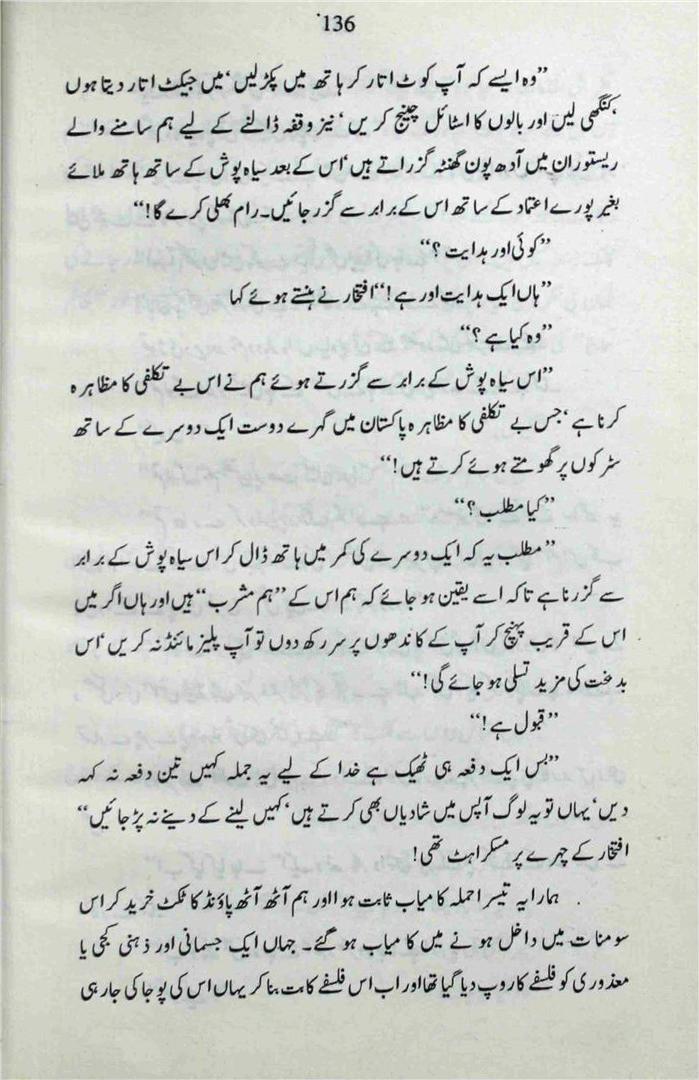 136
”وہ ایسے کہ آپ کوٹ اتار کر ہاتھ میں پکڑ لیں‘ میں جیکٹ اتار دیتا ہوں
‘کنگھی لیں اور بالوں کا اسٹائل چینج کریں‘ نیز وقفہ ڈالنے کے لیے ہم سامنے والے
ریستوران میں آدھ پون گھنٹہ گزارتے ہیں‘ اس کے بعد سیاہ پوش کے ساتھ ہاتھ ملائے
بغیر پورے اعتماد کے ساتھ اس کے برابر سے گزر جائیں۔ رام بھلی کرے گا!“
”کوئی اور ہدایت؟“
”ہاں ایک ہدایت اور ہے!“ افتخار نے ہنستے ہوئے کہا
”وہ کیا ہے؟“
”اس سیاہ پوش کے برابر سے گزرتے ہوئے ہم نے اس بے تکلفی کا مظاہرہ
کرنا ہے‘ جس بے تکلفی کا مظاہرہ پاکستان میں گہرے دوست ایک دوسرے کے ساتھ
سڑکوں پر گھومتے ہوئے کرتے ہیں!“
”کیا مطلب؟“
”مطلب یہ کہ ایک دوسرے کی کمر میں ہاتھ ڈال کر اس سیاہ پوش کے برابر
سے گزرنا ہے تاکہ اسے یقین ہو جائے کہ ہم اس کے ”ہم مشرب“ ہیں اور ہاں اگر میں
اس کے قریب پہنچ کر آپ کے کاندھوں پر سر رکھ دوں تو آپ پلیز مائنڈ نہ کریں‘ اس
بدبخت کی مزید تسلی ہو جائے گی!“
”قبول ہے!“
”بس ایک دفعہ ہی ٹھیک ہے خدا کے لیے یہ جملہ کہیں تین دفعہ نہ کہہ
دیں‘ یہاں تو یہ لوگ آپس میں شادیاں بھی کرتے ہیں‘ کہیں لینے کے دینے نہ پڑ جائیں“
افتخار کے چہرے پر مسکراہٹ تھی!
ہمارا یہ تیسرا حملہ کامیاب ثابت ہوا اور ہم آٹھ آٹھ پاؤنڈ کا ٹکٹ خرید کر اس
سومنات میں داخل ہونے میں کامیاب ہو گئے۔ جہاں ایک جسمانی اور ذہنی کجی یا
معذوری کو فلسفے کا روپ دیا گیا تھا اور اب اس فلسفے کا بت بنا کر یہاں اس کی پوجا کی جا رہی